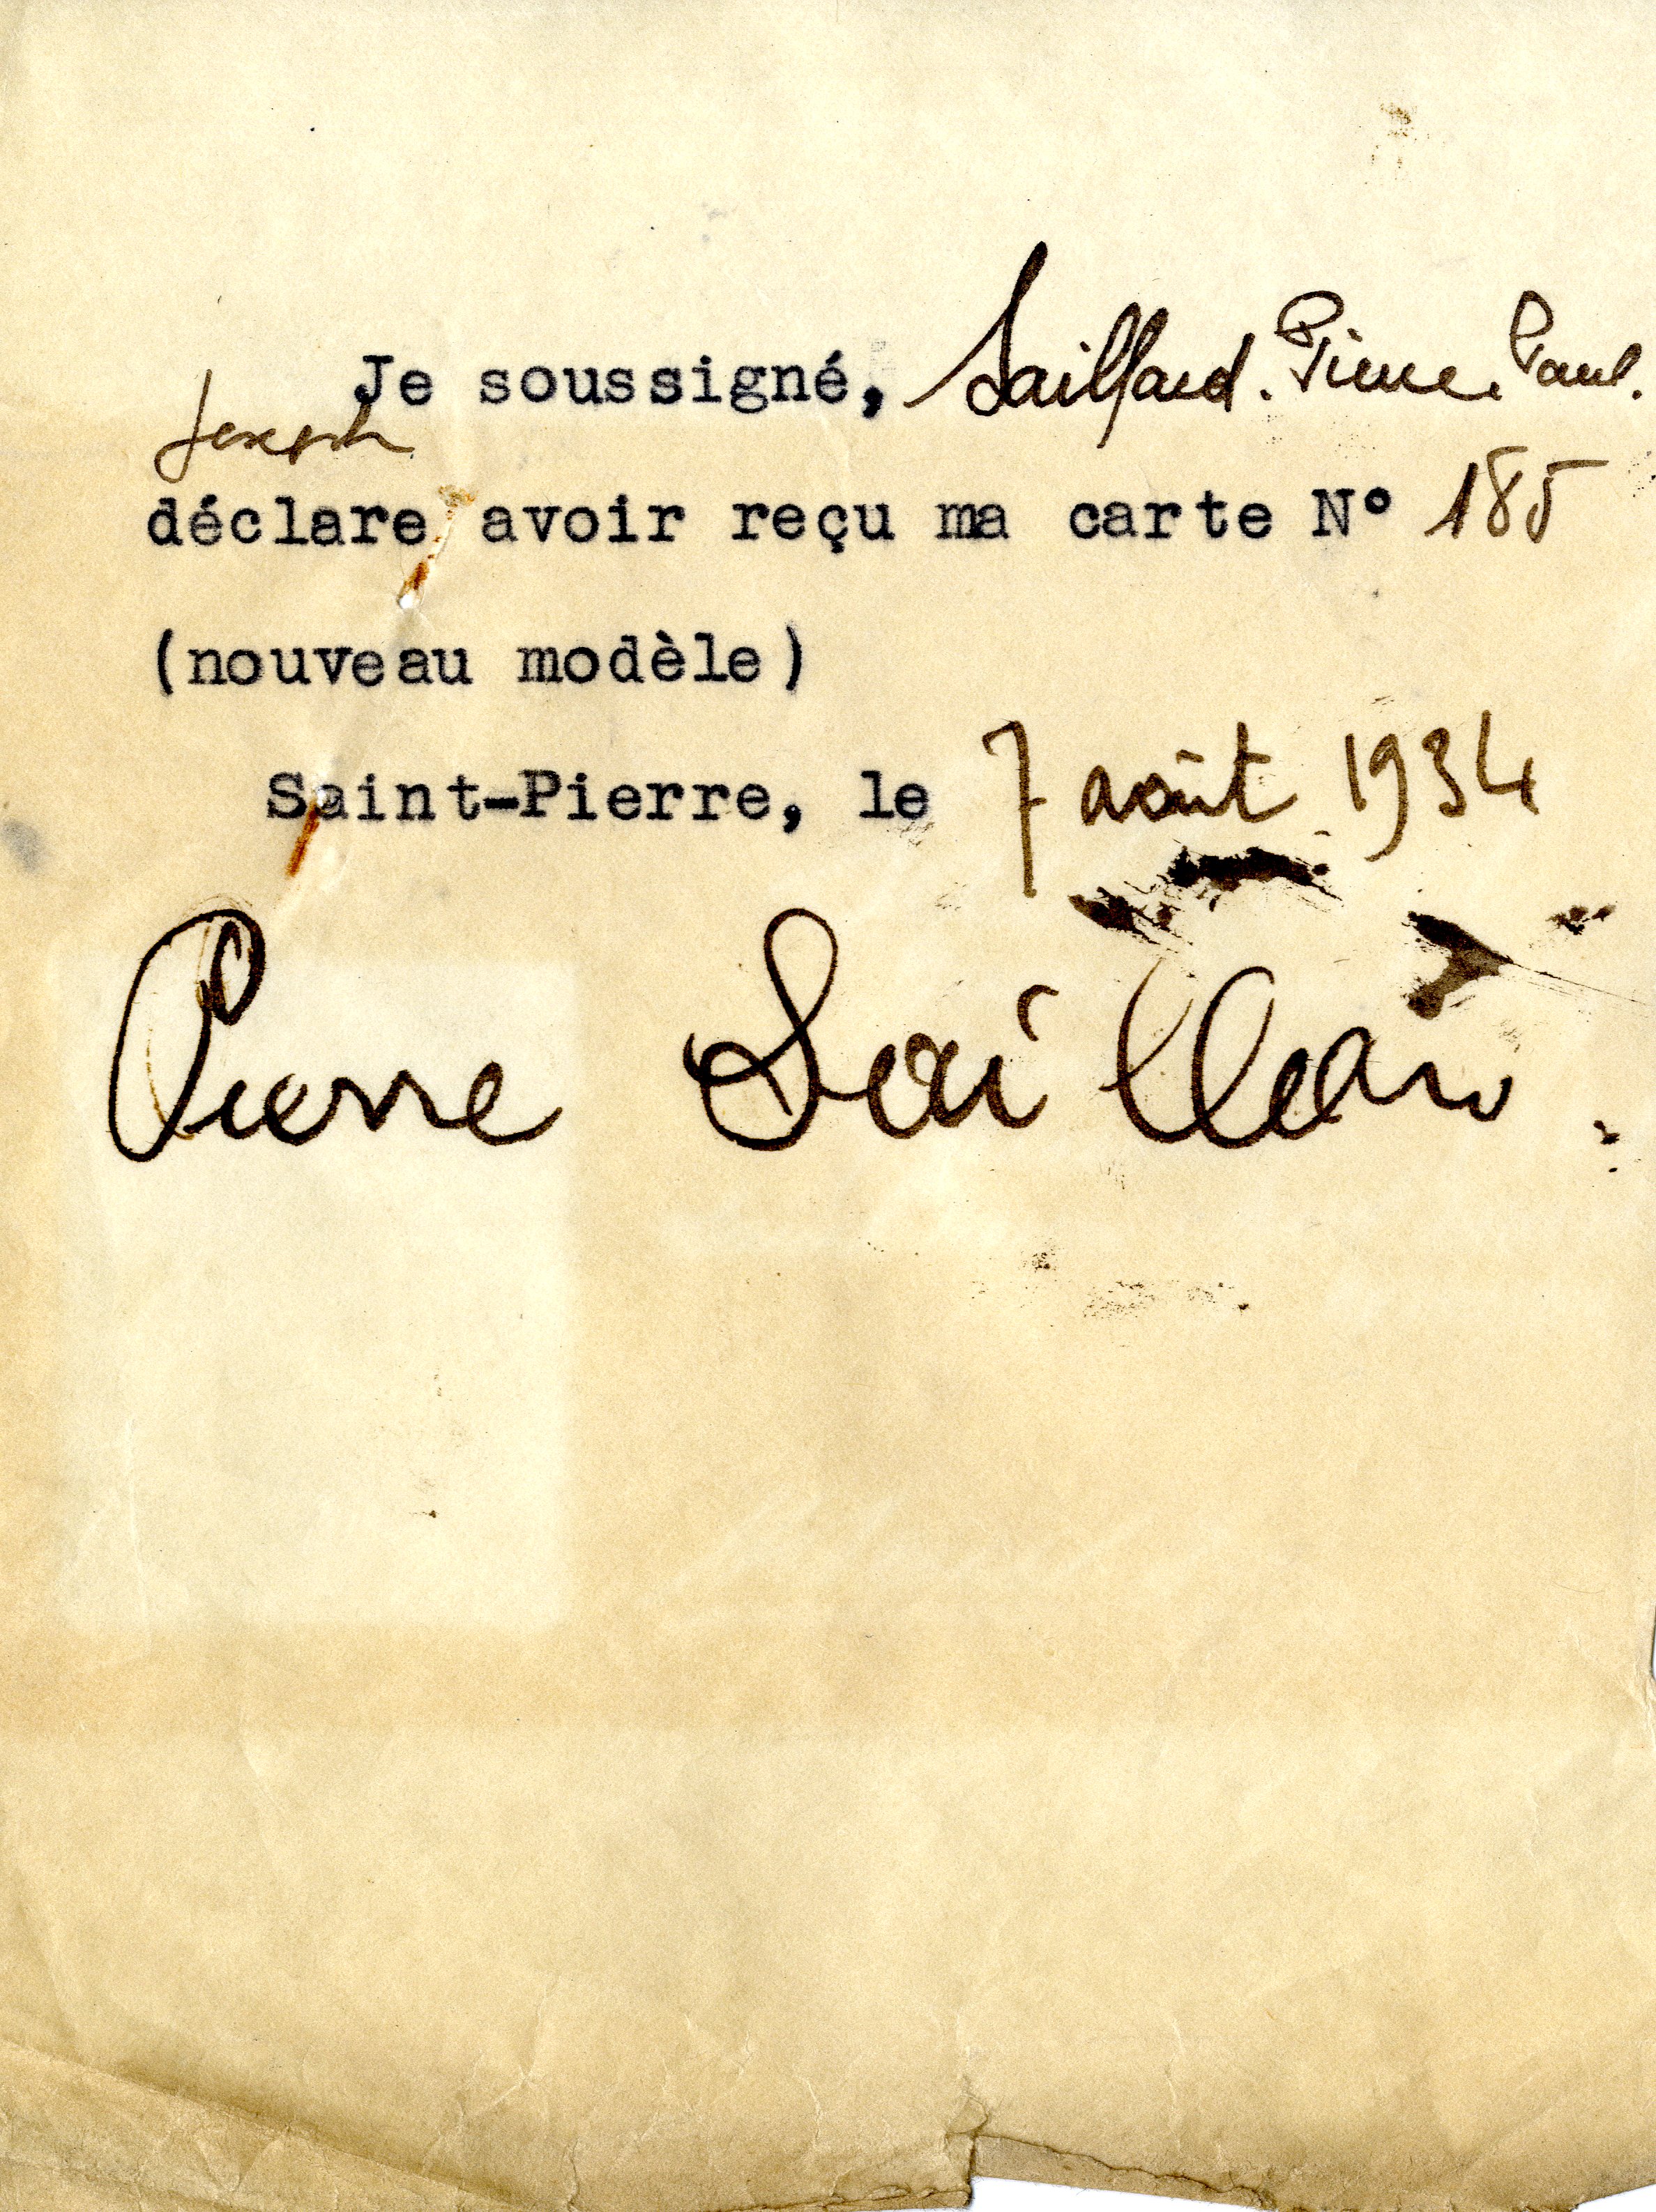 Je soussigné, Saillard. Pierre. Paul.
Joseph
déclare avoir reçu ma carte N° 185
(nouveau modèle)
Saint-Pierre, le 7 août 1934
Pierre Saillard